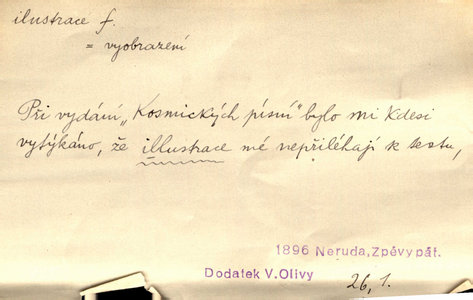 ilustrace f.
= vyobrazení
Při vydání „Kosmických písní" bylo mi kdesi
vytýkáno, že illustrace mé nepřiléhají k textu,
1896 Neruda, Zpěvy pát.
Dodatek V. Olivy
26, 1.